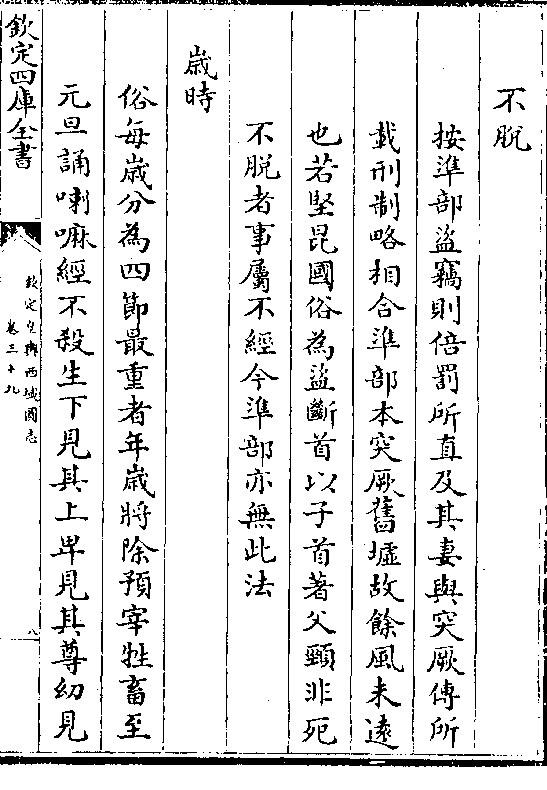 不脱
按準部盜竊則倍罰所直及其妻與突厥傳所
載刑制略相合準部本突厥舊墟故餘風未遠
也若堅昆國俗為盜斷首以子首著父頸非死
不脱者事屬不經今準部亦無此法
歲時
俗每歲分為四節最重者年歲將除預宰牲畜至
元旦誦喇嘛經不殺生下見其上卑見其尊幼見
欽定四庫全書
欽定皇輿西域圖志
卷三十九
八